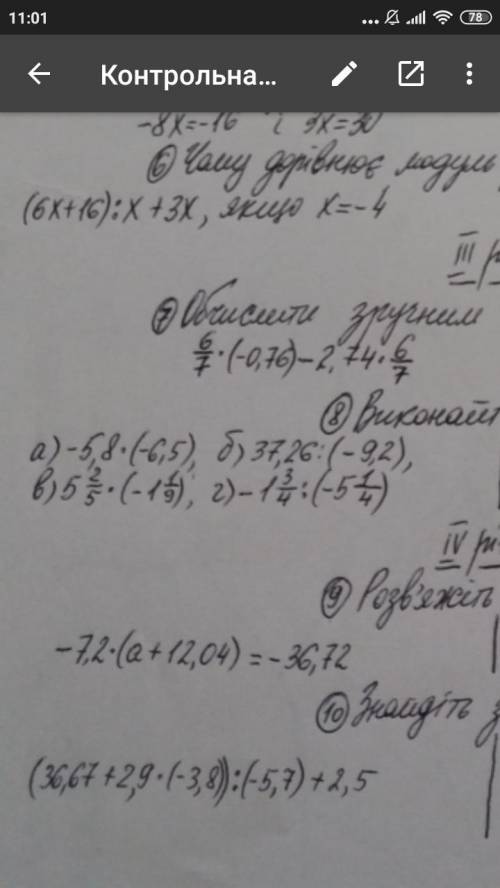 11:01
78
Контрольна...
-8x=-16
3x=30
⑥ Чому дорівнює модуль
(6x+16):x+3x, якщо x=-4
III р
⑦ Обчислити зручним
6/7·(-0,76)-2,74·6/7
⑧ Виконайт
а) -5,8·(-6,5), б) 37,26:(-9,2),
в) 5 2/5·(-1 1/9), г) -1 3/4:(-5 1/4)
IV рі
⑨ Розв'яжіть
-7,2·(a+12,04)=-36,72
⑩ Знайдіть з
(36,67+2,9·(-3,8)):(-5,7)+2,5